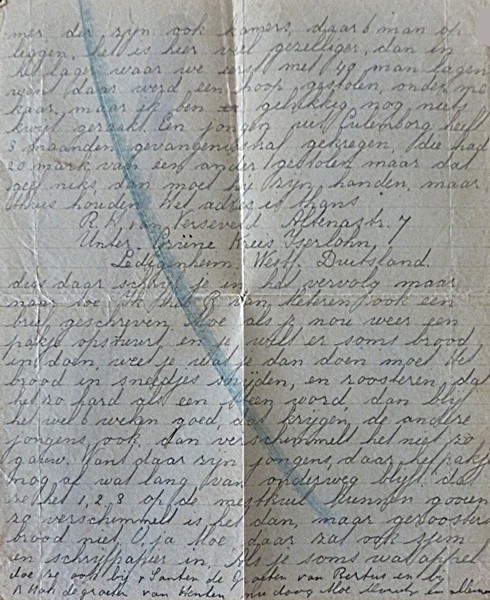 mer der zijn ook kamers, daar 6 man op
liggen. Het is hier veel gezelliger, dan in
het lager waar we eerst met 40 man lagen
want daar werd een hoop gestolen, onder me
kaar, maar ik ben gelukkig nog niets
kwijt geraakt. Een jongen uit Culemborg heef
3 maanden gevangenisstraf gekregen, die had
20 mark van een ander gestolen maar dat
geef niks, dan moet hij zijn handen, maar
thuis houden. Het adres is thans
R. H. van Altenastr. 7
Unter. Grüne Kreis Iserlohn
Ledigenheim. Westf. Duitsland.
dus daar schrijf je in het vervolg maar
naar toe. Ik heb R van Heteren ook een
brief geschreven. Moe als je nou weer een
pakje opstuurt, en je wilt er soms brood
in doen, weet je wat je dan doen moet het
brood in sneedjes snijden, en roosteren, dat
het zo hard als een steen word, dan blijf
het wel weken goed, dat krijgen, de andere
jongens, ook, dan verschimmelt het niet zo
gauw. Want daar zijn jongens, daar het pakje
nog al wat lang van onderweg blijf, dat
ze het 1, 2, 3 op de mestkuil kunnen gooien
zo verschimmelt is het dan, maar geroosterd
brood niet. O ja Moe daar zat ook
en schrijfpapier in. Als je soms wat appel
doe ze ook bij de Groeten van Bertus en
de groeten van Moe